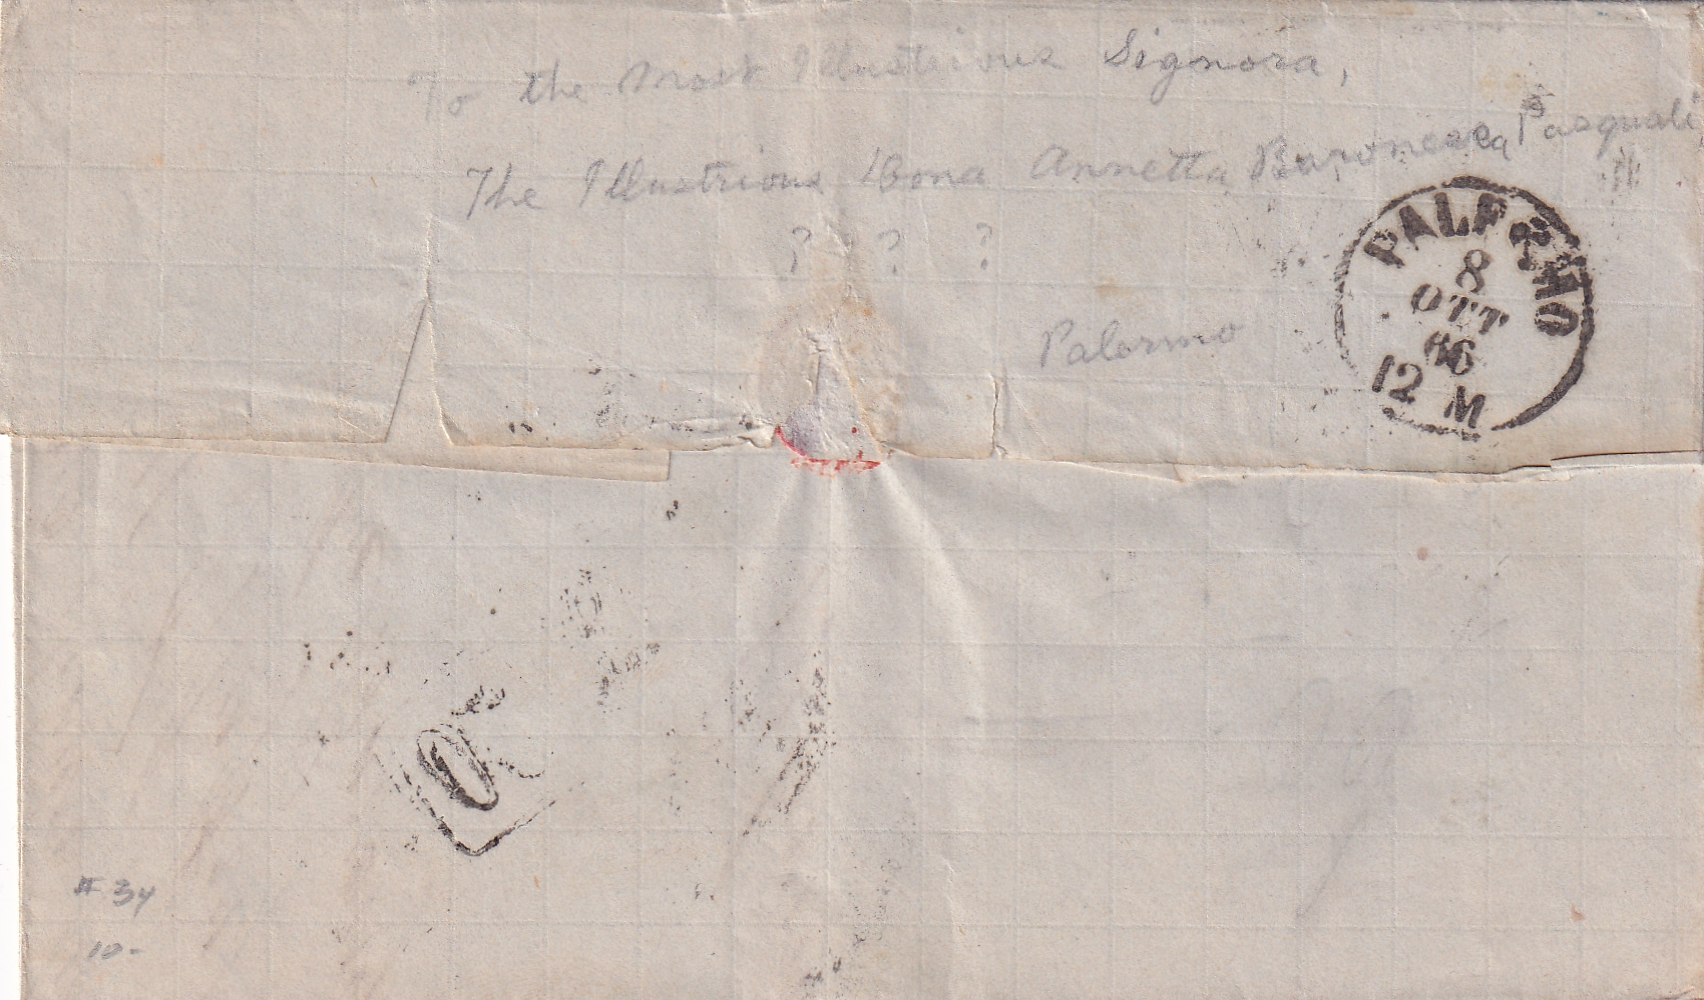 To the Most Illustrious Signora,
The Illustrious Dona Annetta Baronessa Pasquali
? ? ?
Palermo
PALERMO
8
OTT
66
12 M
# 34
10-